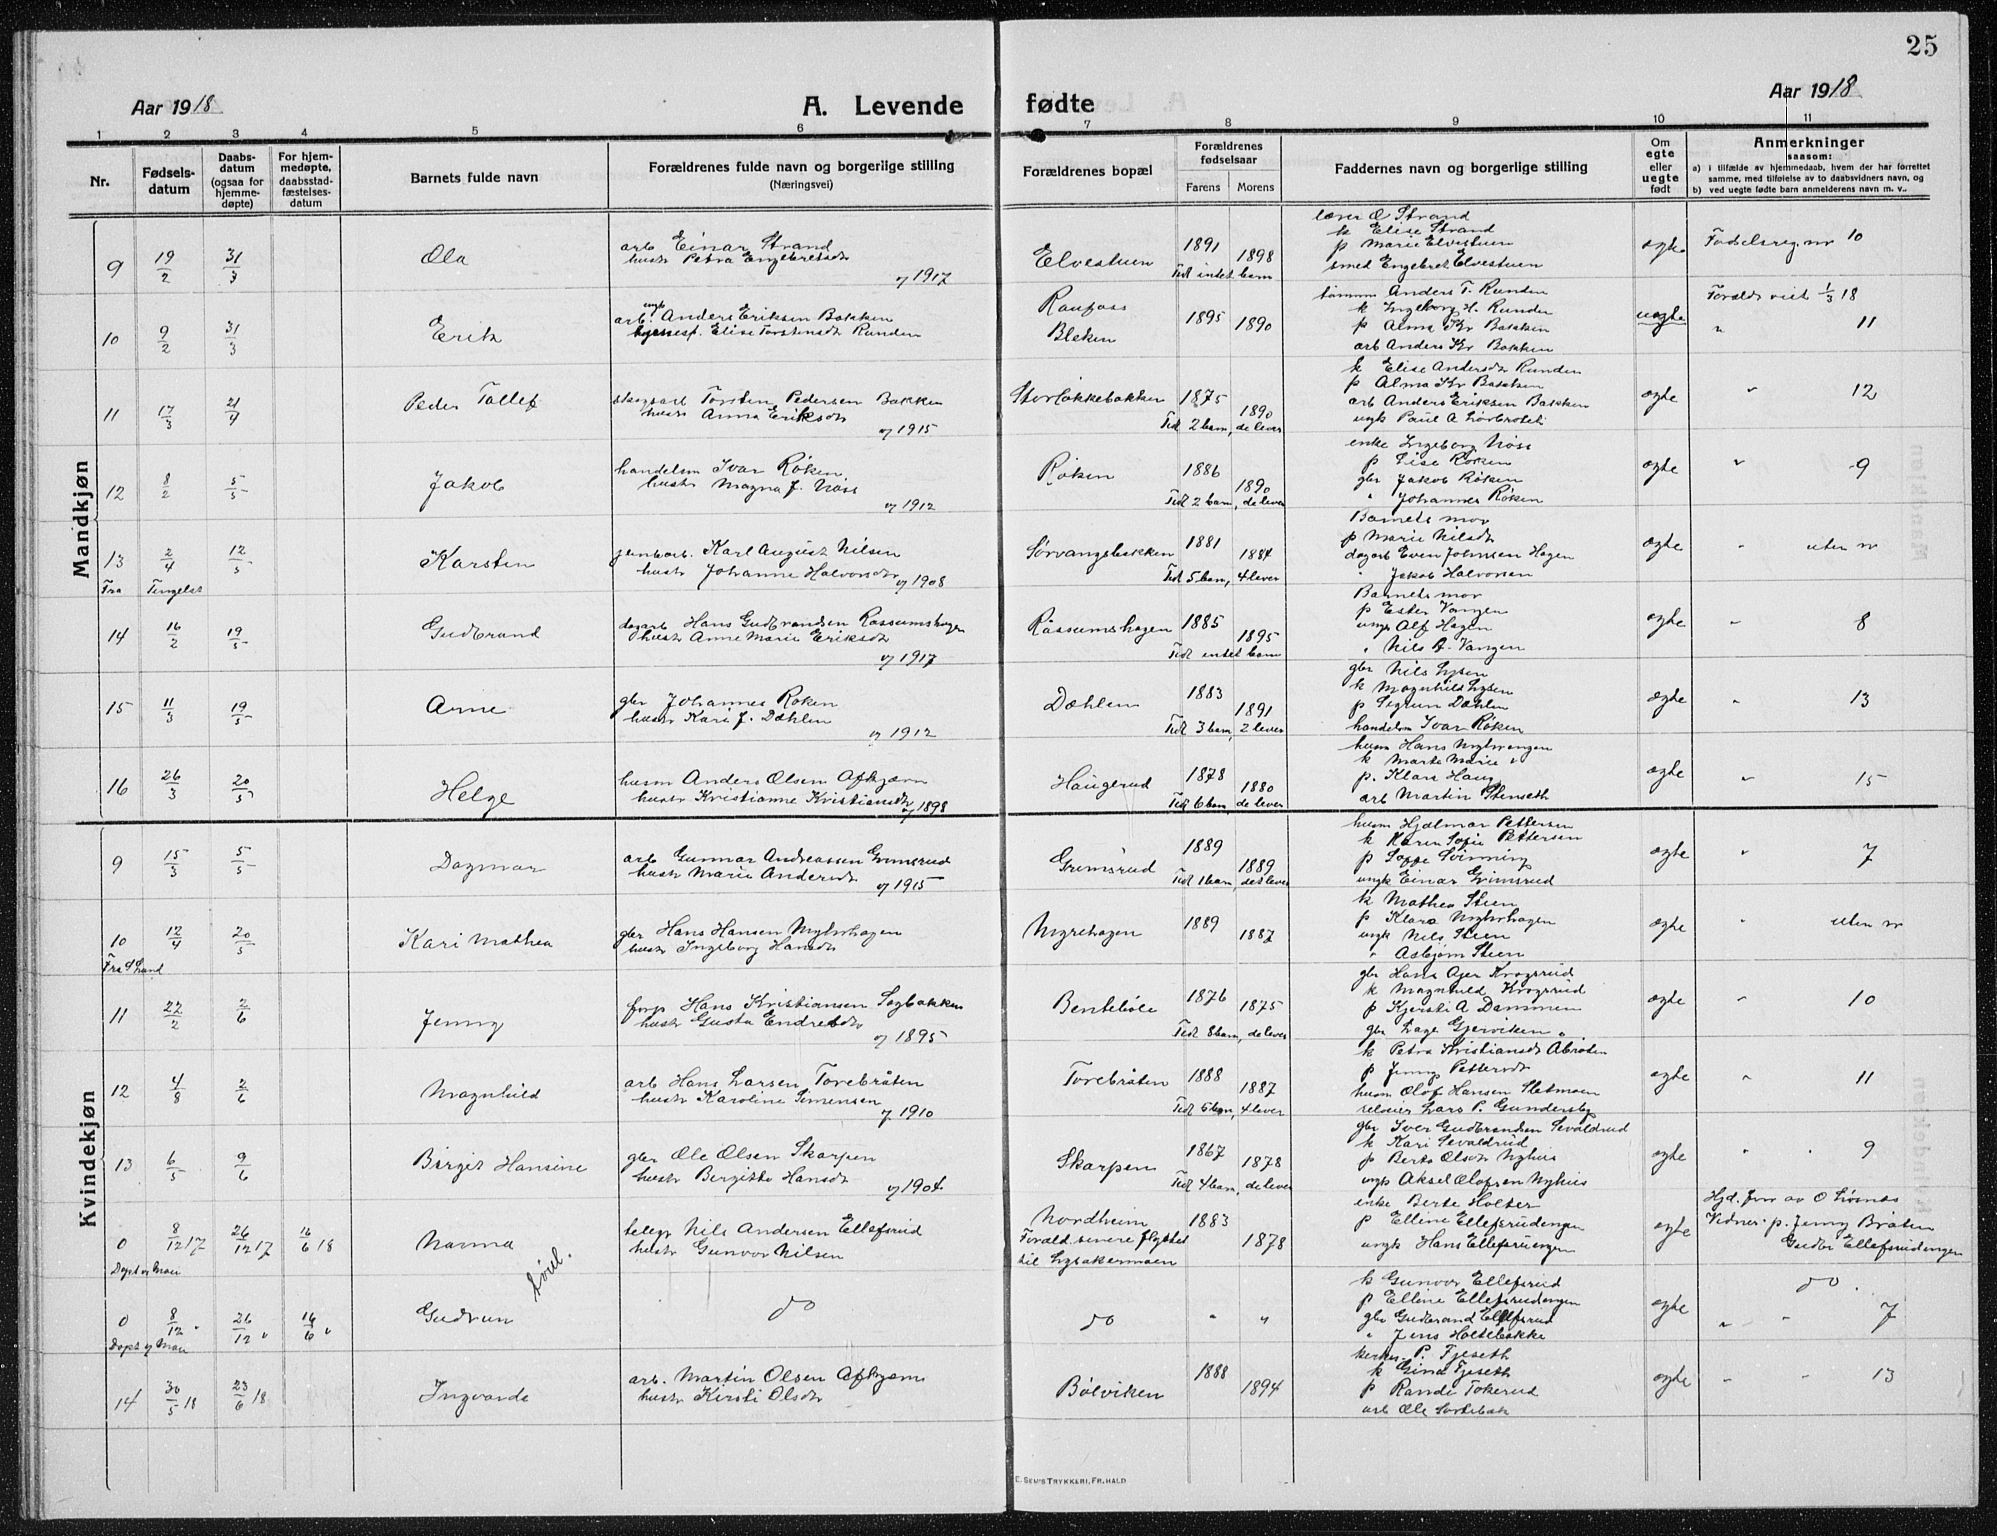 25
Aar 1918
A. Levende fødte
Aar 1918
1 2 3 4 5 6 7 8 9 10 11
Nr.
Fødsels-
datum
Daabs-
datum
(ogsaa for
hjemme-
døpte)
For hjem-
medøpte,
daabsstad-
fæstelses-
datum
Barnets fulde navn
Forældrenes fulde navn og borgerlige stilling
(Næringsvei)
Forældrenes bopæl
Forældrenes
fødselsaar
Farens Morens
Faddernes navn og borgerlige stilling
Om
egte
eller
uegte
født
Anmerkninger
saasom:
a) i tilfælde av hjemmedaab, hvem der har forrettet
samme, med tilføielse av to daabsvidners navn, og
b) ved uegte fødte barn anmelderens navn m. v..
Mandkjøn
9 19/2 31/3 Ola
arb Einar Strand
hustr Petra Engebretsdr
g 1917
Elvestuen 1891 1898
Tidl intet barn
lærer O Strand
k Elise Strand
p Marie Elvestuen
smed Engebret Elvestuen
egte
Fødselsreg. nr 10
10 9/2 31/3 Erik
ungk
arb. Anders Eriksen Bakken
Elise Torstensdr Runden
Raufoss
Bleken
1895 1890
Anders T. Runden
k Ingeborg H. Runden
p Alma Kr Bakken
arb Anders Kr Bakken
uegte
Foreldr viet 1/3 18
" 11
11 17/3 21/4 Peder Tollef
skogsarb Torsten Pedersen Bakken
hustr Anna Eriksdr
g 1915
Storløkkebakken 1875 1890
Tidl 2 barn, de lever
k Elise Andersdr Runden
p Alma Kr Bakken
arb Anders Eriksen Bakken
ungk Paul A
egte
" 12
12 8/2 5/5 Jakob
handelsm Ivar Røken
hustr Magna J. Nøss
g 1912
Røken 1886 1890
Tidl 2 barn, de lever
enke Ingeborg Nøss
p Lise Røken
gbr Jakob Røken
" Johannes Røken
egte
" 9
13 2/4 12/5 Karsten
Fra Fengelst
jernbarb. Karl August Nilsen
hustr Johanne Halvorsdr g 1908
Sørvangsbakken 1881 1884
Tidl 5 barn, 4 lever
Barnets mor
p Marie Nilsdr
dagarb Even Johnsen Hagen
" Jakob Halvorsen
egte
" uten nr
14 16/2 19/5 Gudbrand
dagarb Hans Gudbrandsen Røssumshagen
hustr Anne Marie Eriksdr
g 1917
Røssumshagen 1885 1895
Tidl intet barn
Barnets mor
p Ester Vangen
ungk Alf Hagen
" Nils G. Vangen
egte
" 8
15 11/3 19/5 Arne
gbr Johannes Røken
hustr Kari J. Dæhlen
g 1912
Dæhlen 1883 1891
Tidl 3 barn, 2 lever
gbr Nils Lysen
k Magnhild Lysen
p Sigrun Dæhlen
handelsm Ivar Røken
egte
" 13
16 26/3 20/5 Helge
husm Anders Olsen Afkjærn
hustr Kristianne Kristiansdr
g 1898
Haugerud 1878 1880
Tidl 6 barn, de lever
husm Hans Myhrvangen
k Marte Marie "
p. Klara Haug
arb Martin Stenseth
egte
" 15
Kvindekjøn
9 15/3 5/5 Dagmar
arb Gunnar Andreassen Grimsrud
hustr Marie Andersdr
g 1915
Grimsrud 1889 1889
Tidl 1 barn, det lever
husm Hjalmar Pettersen
k Karen Sofie Pettersen
p Soffe Svinning
ungk Einar Grimsrud
egte
" 7
10 12/4 20/5 Kari Mathea
Fra S Land
gbr Hans Hansen Myhrhagen
hustr Ingeborg Hansdr
Myrehagen 1889 1887
k Mathea Steen
p Klara Myhrhagen
ungk Nils Steen
" Asbjørn Steen
egte
" uten nr
11 22/2 2/6 Jenny
forp Hans Kristiansen Sagbakken
hustr Gusta Endresdr
g 1895
Bentebøle 1876 1875
Tidl 8 barn, de lever
gbr Hans Ajer Krogsrud
k Magnhild Krogsrud
p Kjersti A Dammen
gbr Lage Gjerviken "
egte
" 10
12 4/8 2/6 Magnhild
arb Hans Larsen Torebråten
hustr Karoline Simensen
g 1910
Torebråten 1888 1887
Tidl 5 barn, 4 lever
k Petra Kristiansdr Abråten
p Jenny Pettersdr
husm Olof Hansen Slatmoen
Lars P. Gundersby
egte
" 11
13 6/5 9/6 Birgit Hansine
gbr Ole Olsen Skarpen
hustr Birgitte Hansdr
g 1904.
Skarpen 1867 1878
Tidl 4 barn, de lever
gbr Iver Gudbrandsen Sevaldrud
k Kari Sevaldrud
p Berte Olsdr Nyhus
ungk Aksel Olafsen Nyhus
egte
" " 9
0 8/12 17 26/12 17 16/6 18 Narma
Døpt v Moen
telegr Nils Andersen Ellefsrud
hustr Gunvor Nilsen
Nordheim
Foræld. senere flyttet
til Lysakermoen
1883 1878
enke Berte Holter
p Elline Ellefsrudengen
ungk Hans Ellefsrudengen
egte
Hjd. forr av O
Vidner. p. Jenny Bråten
Gudbr Ellefsrudengen
0 8/12 " 26/12 " 16/6 " Gudrun
Døpt v Moen
do
do " "
k Gunvor Ellefsrud
p Elline Ellefsrudengen
gbr Gudbrand Ellefsrud
" Jens Holtebakke
egte
do.
" " 7
14 30/5 18 23/6 18 Ingvarda
arb. Martin Olsen Afkjærn
hustr Kirsti Olsdr
Bølviken 1888 1894
P. Fjeseth
k Gina Fjeseth
p Randi Tokerud
arb Ole Sortebak
egte
" " 13
E. SEM'S TRYKKERI, FR.HALD